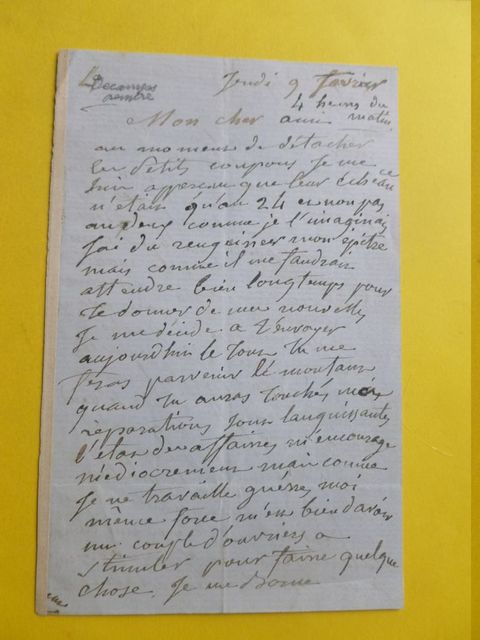 Decamps
peintre
Jeudi 9 février
4 heures du
matin
Mon cher ami
au moment de détacher
les petits coupons je me
suis apperceu que leur échéance
n'était qu'au 24 et non pas
au deux comme je l'imaginais
j'ai du rengainer mon épitre
mais comme il me faudrait
attendre bien longtemps pour
te donner de mes nouvelles
je me décide a t'envoyer
aujourdhui le tout tu me
feras parvenir le montant
quand tu auras touchés mes
réparations sont languissantes
l'état des affaires m'encourage
médiocrement mais comme
je ne travaille guères moi
même force m'est bien d'avoir
un couple d'ouvriers a
stimuler pour faire quelque
chose. Je me borne